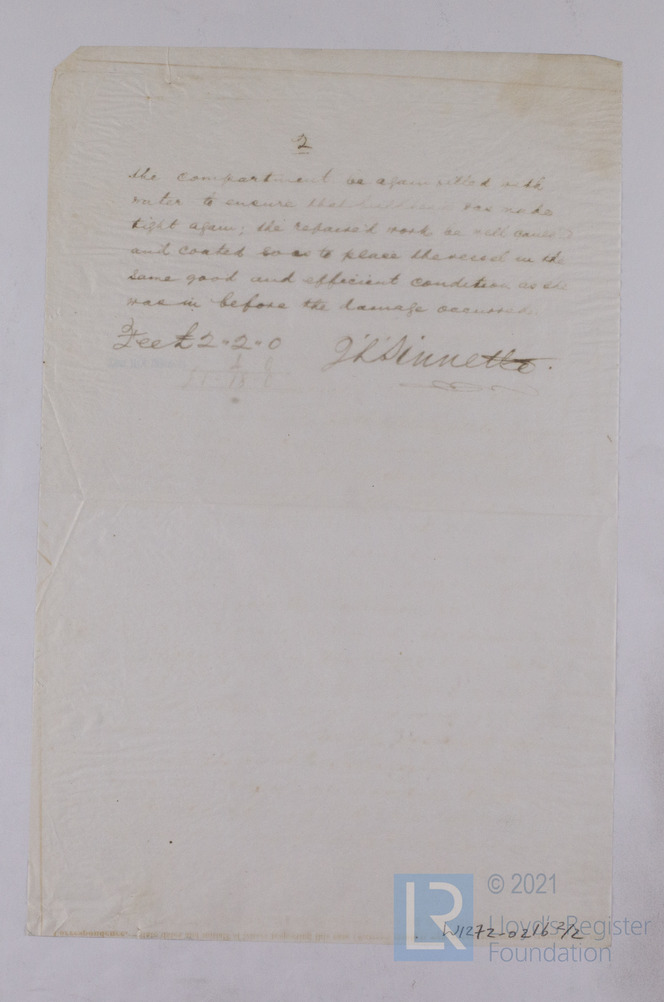 2
the compartment be again filled with
water to ensure that bulkhead was made
tight again; the repaired work be well
and coated so as to place the vessel in the
same good and efficient condition as she
was in before the damage occurred.
Fee £2=2=0 J L Sinnette.
© 2021
LR Lloyd's Register
Foundation
W1272-0216 2/2